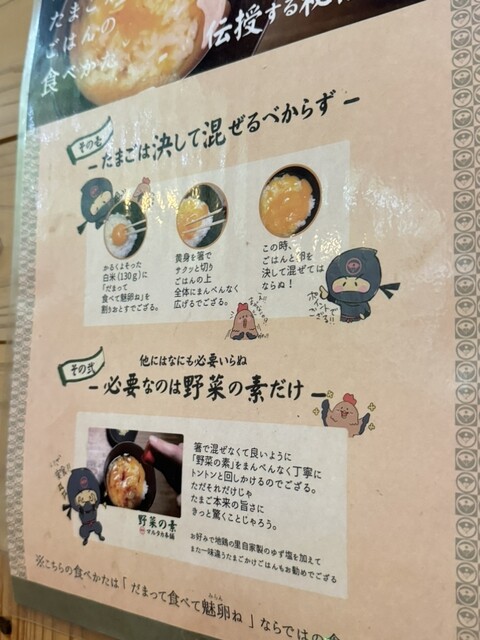 たまご
ごはんの
食べかた
伝授する秘
その壱
たまごは決して混ぜるべからず
かるくよそった
白米(130g)に
「だまって
食べて魅卵ね」を
割りおとすでござる。
黄身を箸で
サクッと切り
ごはんの上
全体にまんべんなく
広げるでござる。
この時、
ごはんと卵を
決して混ぜては
ならぬ!
ポイントで
ござる!!
その弐
他にはなにも必要いらぬ
必要なのは野菜の素だけ
箸で混ぜなくて良いように
「野菜の素」をまんべんなく丁寧に
トントンと回しかけるのでござる。
ただそれだけじゃ
たまご本来の旨さに
きっと驚くことじゃろう。
野菜の素
マルタカ本舗
お好みで地鶏の里自家製のゆず塩を加えて
また一味違うたまごかけごはんもお勧めでござる
※こちらの食べかたは「だまって食べて魅卵ね」ならではの食
みらん